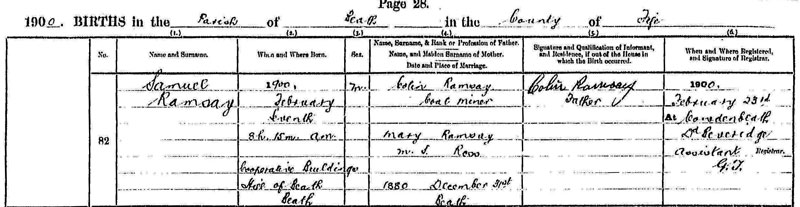 Page 28.
1900. BIRTHS in the Parish of Beath in the County of Fife
(1.) (2.) (3.) (4.) (5.) (6.)
No. Name and Surname. When and Where Born. Sex. Name, Surname, & Rank or Profession of Father. Name, and Maiden Surname of Mother. Date and Place of Marriage. Signature and Qualification of Informant, and Residence, if out of the House in which the Birth occurred. When and Where Registered, and Signature of Registrar.
82
Samuel
Ramsay
1900,
February
8h. 15m. am.
Cooperative Buildings
Hill of Beath
Beath
M.
Colin Ramsay
Coal Miner
Mary Ramsay
m. S. Ross
1880 December 31st
Beath
Colin Ramsay
Father
1900.
February 23rd
At Cowdenbeath
Beveridge
Assistant Registrar.